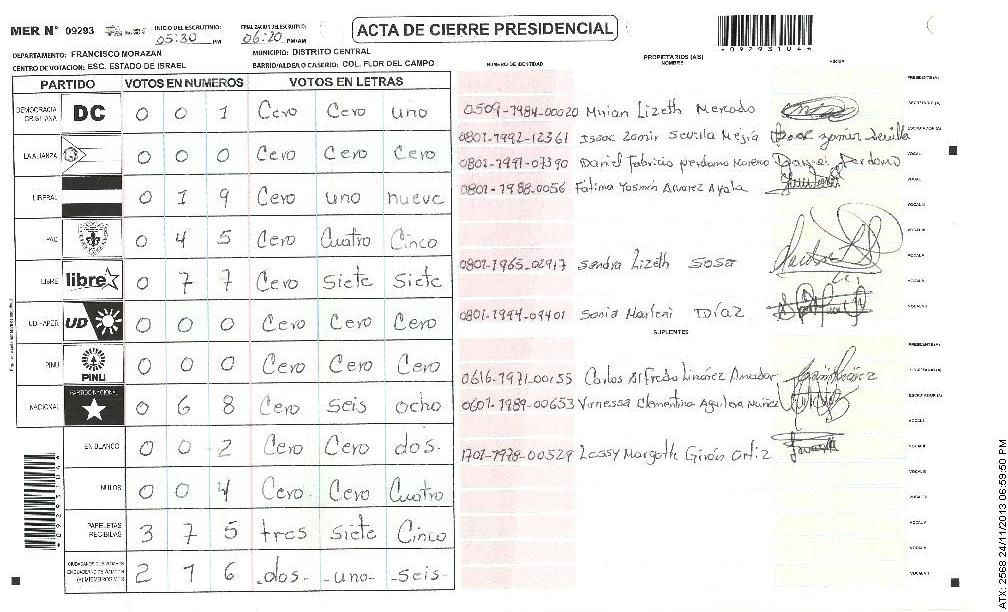 MER N° 09293 INICIO DEL ESCRUTINIO: 05:30 PM FINALIZACION DEL ESCRUTINIO: 06:20 PM/AM ACTA DE CIERRE PRESIDENCIAL *092931044*
DEPARTAMENTO: FRANCISCO MORAZAN MUNICIPIO: DISTRITO CENTRAL
CENTRO DE VOTACION: ESC. ESTADO DE ISRAEL BARRIO/ALDEA O CASERIO: COL. FLOR DEL CAMPO
NUMERO DE IDENTIDAD PROPIETARIOS (AS) NOMBRE FIRMA
PARTIDO VOTOS EN NUMEROS VOTOS EN LETRAS
DEMOCRACIA CRISTIANA DC 0 0 1 Cero Cero uno
LA ALIANZA 0 0 0 Cero Cero Cero
LIBERAL 0 1 9 Cero uno nueve
PAC 0 4 5 Cero Cuatro Cinco
LIBRE libre 0 7 7 Cero Siete Siete
UD FAPER UD 0 0 0 Cero Cero Cero
PINU PINU 0 0 0 Cero Cero Cero
NACIONAL PARTIDO NACIONAL 0 6 8 Cero seis ocho
EN BLANCO 0 0 2 Cero Cero dos-
NULOS 0 0 4 Cero Cero Cuatro
PAPELETAS RECIBIDAS 3 7 5 tres siete Cinco
2 1 6 -dos- -uno- -seis-
PRESIDENTE(A)
0509-1984-00020 Mirian Lizeth Mercado SECRETARIO (A)
0801-1992-12361 Isaac Zamir Sevilla Mejia ESCRUTADOR (A)
0801-1991-07390 Daniel Fabricio perdomo Moreno Daniel Perdomo VOCAL I
0801-1988-0056 Fatima Yasmin Alvarez Ayala VOCAL II
VOCAL III
VOCAL IV
0801-1965-02917 Sandra Lizeth Sosa VOCAL V
VOCAL VI
0801-1994-09401 Sonia Marleni Díaz VOCAL VII
SUPLENTES
PRESIDENTE(A)
0616-1971-00155 Carlos Alfredo Linarez Amador SECRETARIO (A)
0601-1989-00653 Vanessa Clementina Aguilera Nuñez ESCRUTADOR (A)
VOCAL I
1701-1978-00529 Lessy Margoth Girón Ortiz VOCAL II
VOCAL III
VOCAL IV
VOCAL V
VOCAL VI
VOCAL VII
ATX: 2568 24/11/2013 06:59:50 PM